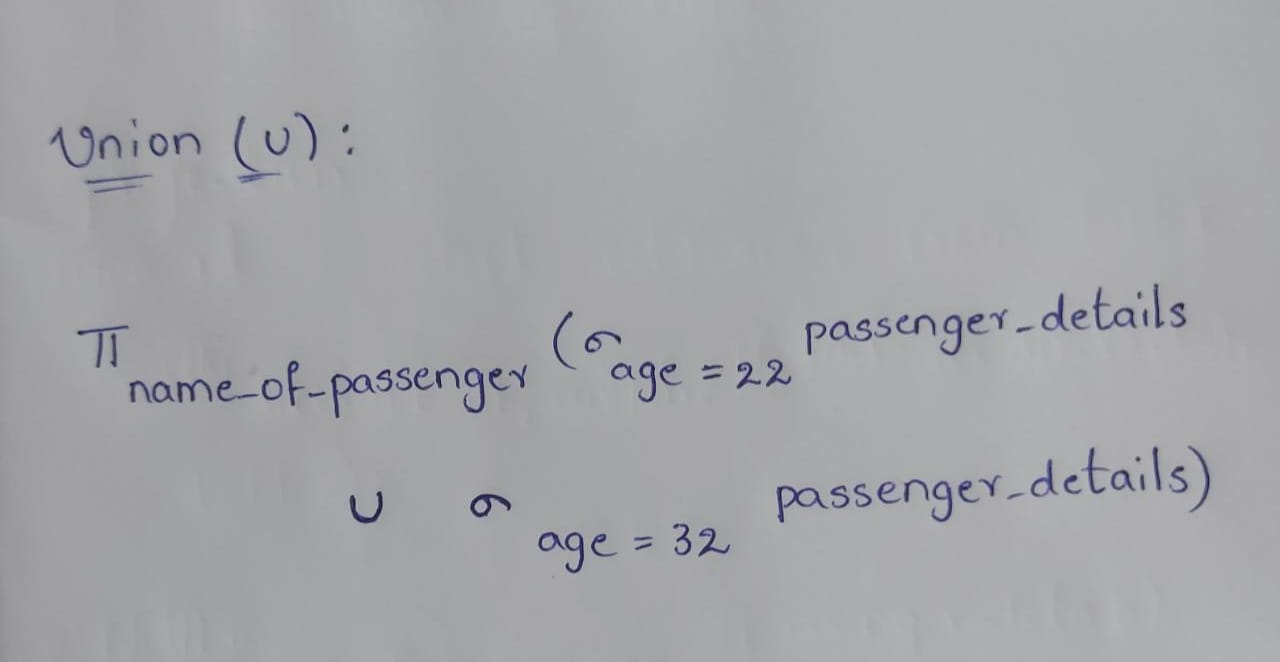 Union (∪):
π name_of_passenger (σ age = 22 passenger_details
∪ σ age = 32 passenger_details)